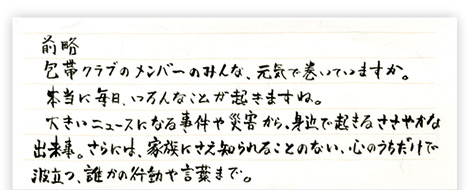 前略
包帯クラブのメンバーのみんな、元気で巻いていますか。
本当に毎日、いろんなことが起きますね。
大きいニュースになる事件や災害から、身近で起きるささやかな
出来事。さらには、家族にさえ知られることのない、心のうちだけで
波立つ、誰かの行動や言葉まで。